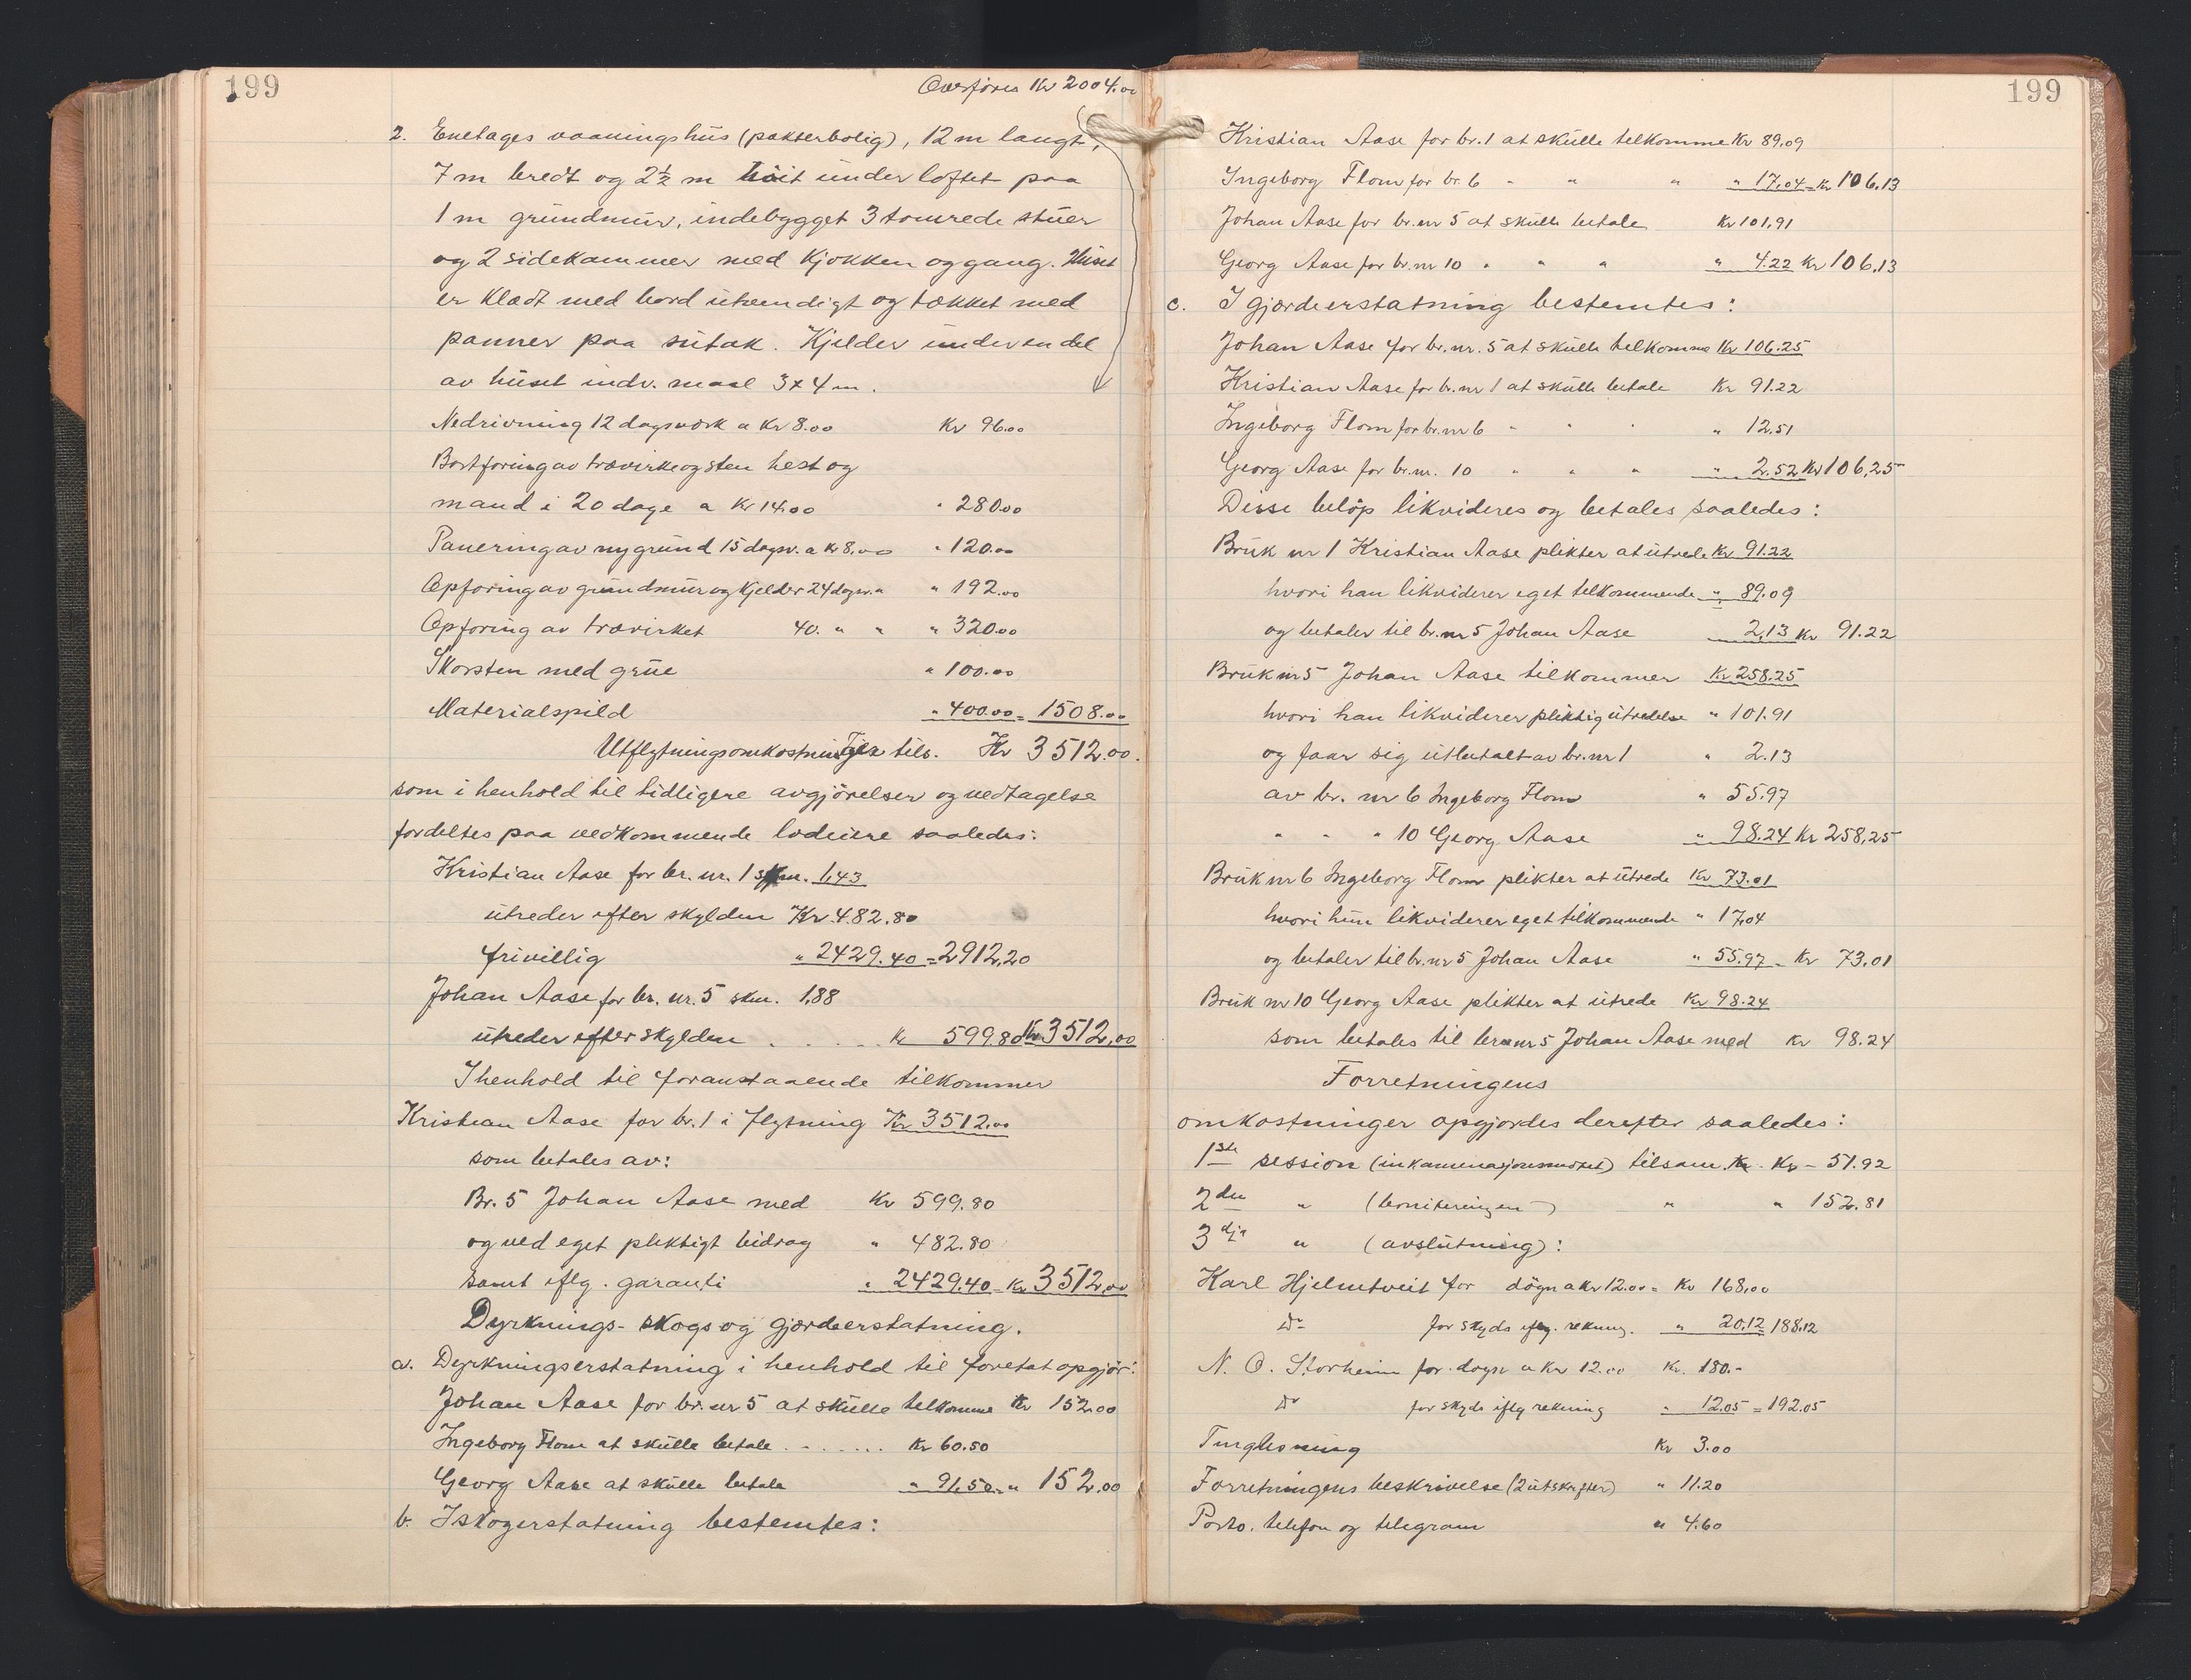 199
Overføres Kr 2004.00
2. Enetages vaaningshus (pakterbolig), 12 m langt,
7 m bredt og 2½ m høit under loftet paa
1 m grundmur, indebygget 3 tømrede stuer
og 2 sidekammer med kjøkken og gang. Huset
er klædt med bord utvendigt og tækket med
panner paa sutak. Kjelder under en del
av huset indv. maal 3x4 m.
Nedrivning 12 dagsverk a Kr 8.00 Kr 96.00
Bortføring av trævirke og sten hest og
mand i 20 dage a Kr 14.00 " 280.00
Planering av ny grund 15 dagsv. a Kr 8.00 " 120.00
Opføring av grundmur og kjelder 24 dagsv. a " 192.00
Opføring av trævirket 40. " " " 320.00
Skorsten med grue " 100.00
Materialspild " 400.00 = 1508.00
Utflytningsomkostninger tils. Kr 3512.00.
som i henhold til tidligere avgjørelser og vedtagelse
fordeltes paa vedkommende lodeiere saaledes:
Kristian Aase for br. nr. 1 skm. 1,43
utreder efter skylden Kr. 482.80
frivillig " 2429.40 = 2912,20
Johan Aase for br. nr. 5 skm. 1,88
utreder efter skylden . . . . . Kr 599.80 Kr 3512,00
I henhold til foranstaaende tilkommer
Kristian Aase for br. 1 i flytning Kr 3512.00
som betales av:
Br. 5 Johan Aase med Kr 599.80
og ved eget pliktigt bidrag " 482.80
samt iflg. garanti " 2429.40 = Kr 3512,00
Dyrknings- skogs og gjærdeerstatning.
a. Dyrkningserstatning i henhold til foretat opgjør:
Johan Aase for br. nr 5 at skulle tilkomme Kr 152.00
Ingeborg Flom at skulle betale . . . . . . . Kr 60.50
Georg Aase at skulle betale " 91.50 = " 152.00
b. I skogerstatning bestemtes:
199
Kristian Aase for br. 1 at skulle tilkomme Kr 89.09
Ingeborg Flom for br. 6 " " " " 17,04 = Kr 106,13
Johan Aase for br. nr 5 at skulle betale Kr 101,91
Georg Aase for br. nr 10 " " " " 4.22 Kr 106,13
c. I gjærdeerstatning bestemtes:
Johan Aase for br. nr. 5 at skulle tilkomme Kr 106.25
Kristian Aase for br. nr 1 at skulle betale Kr 91.22
Ingeborg Flom for br. nr 6 " " " " 12.51
Georg Aase for br. nr. 10 " " " " 2.52 Kr 106,25
Disse beløp likvideres og betales saaledes:
Bruk nr 1 Kristian Aase plikter at utrede Kr 91.22
hvori han likviderer eget tilkommende " 89.09
og betaler til br. nr 5 Johan Aase 2,13 Kr 91.22
Bruk nr 5 Johan Aase tilkommer Kr 258.25
hvori han likviderer pliktig utredelse " 101.91
og faar sig utbetalt av br. nr 1 " 2.13
av br. nr 6 Ingeborg Flom " 55.97
" " " 10 Georg Aase " 98.24 Kr 258,25
Bruk nr 6 Ingeborg Flom plikter at utrede Kr 73.01
hvori hun likviderer eget tilkommende " 17,04
og betaler til br. nr 5 Johan Aase " 55.97 = Kr 73,01
Bruk nr 10 Georg Aase plikter at utrede Kr 98.24
som betales til br nr 5 Johan Aase med Kr 98.24
Forretningens
omkostninger opgjordes derefter saaledes:
1ste session (inkaminasjonsmøtet) tilsam. Kr - 51.92
2den " (boniteringen) " " 152.81
3dje " (avslutning):
Karl Hjelmtveit for døgn a Kr 12.00 = Kr 168,00
do for skyds iflg. rekning. " 20.12 188.12
N. O. Storheim for døgn a Kr 12.00 Kr. 180.-
do for skyds iflg rekning " 12.05 = 192.05
Tinglysning Kr 3.00
Forretningens beskrivelse (2 utskrifter) " 11.20
Porto, telefon og telegram " 4.60